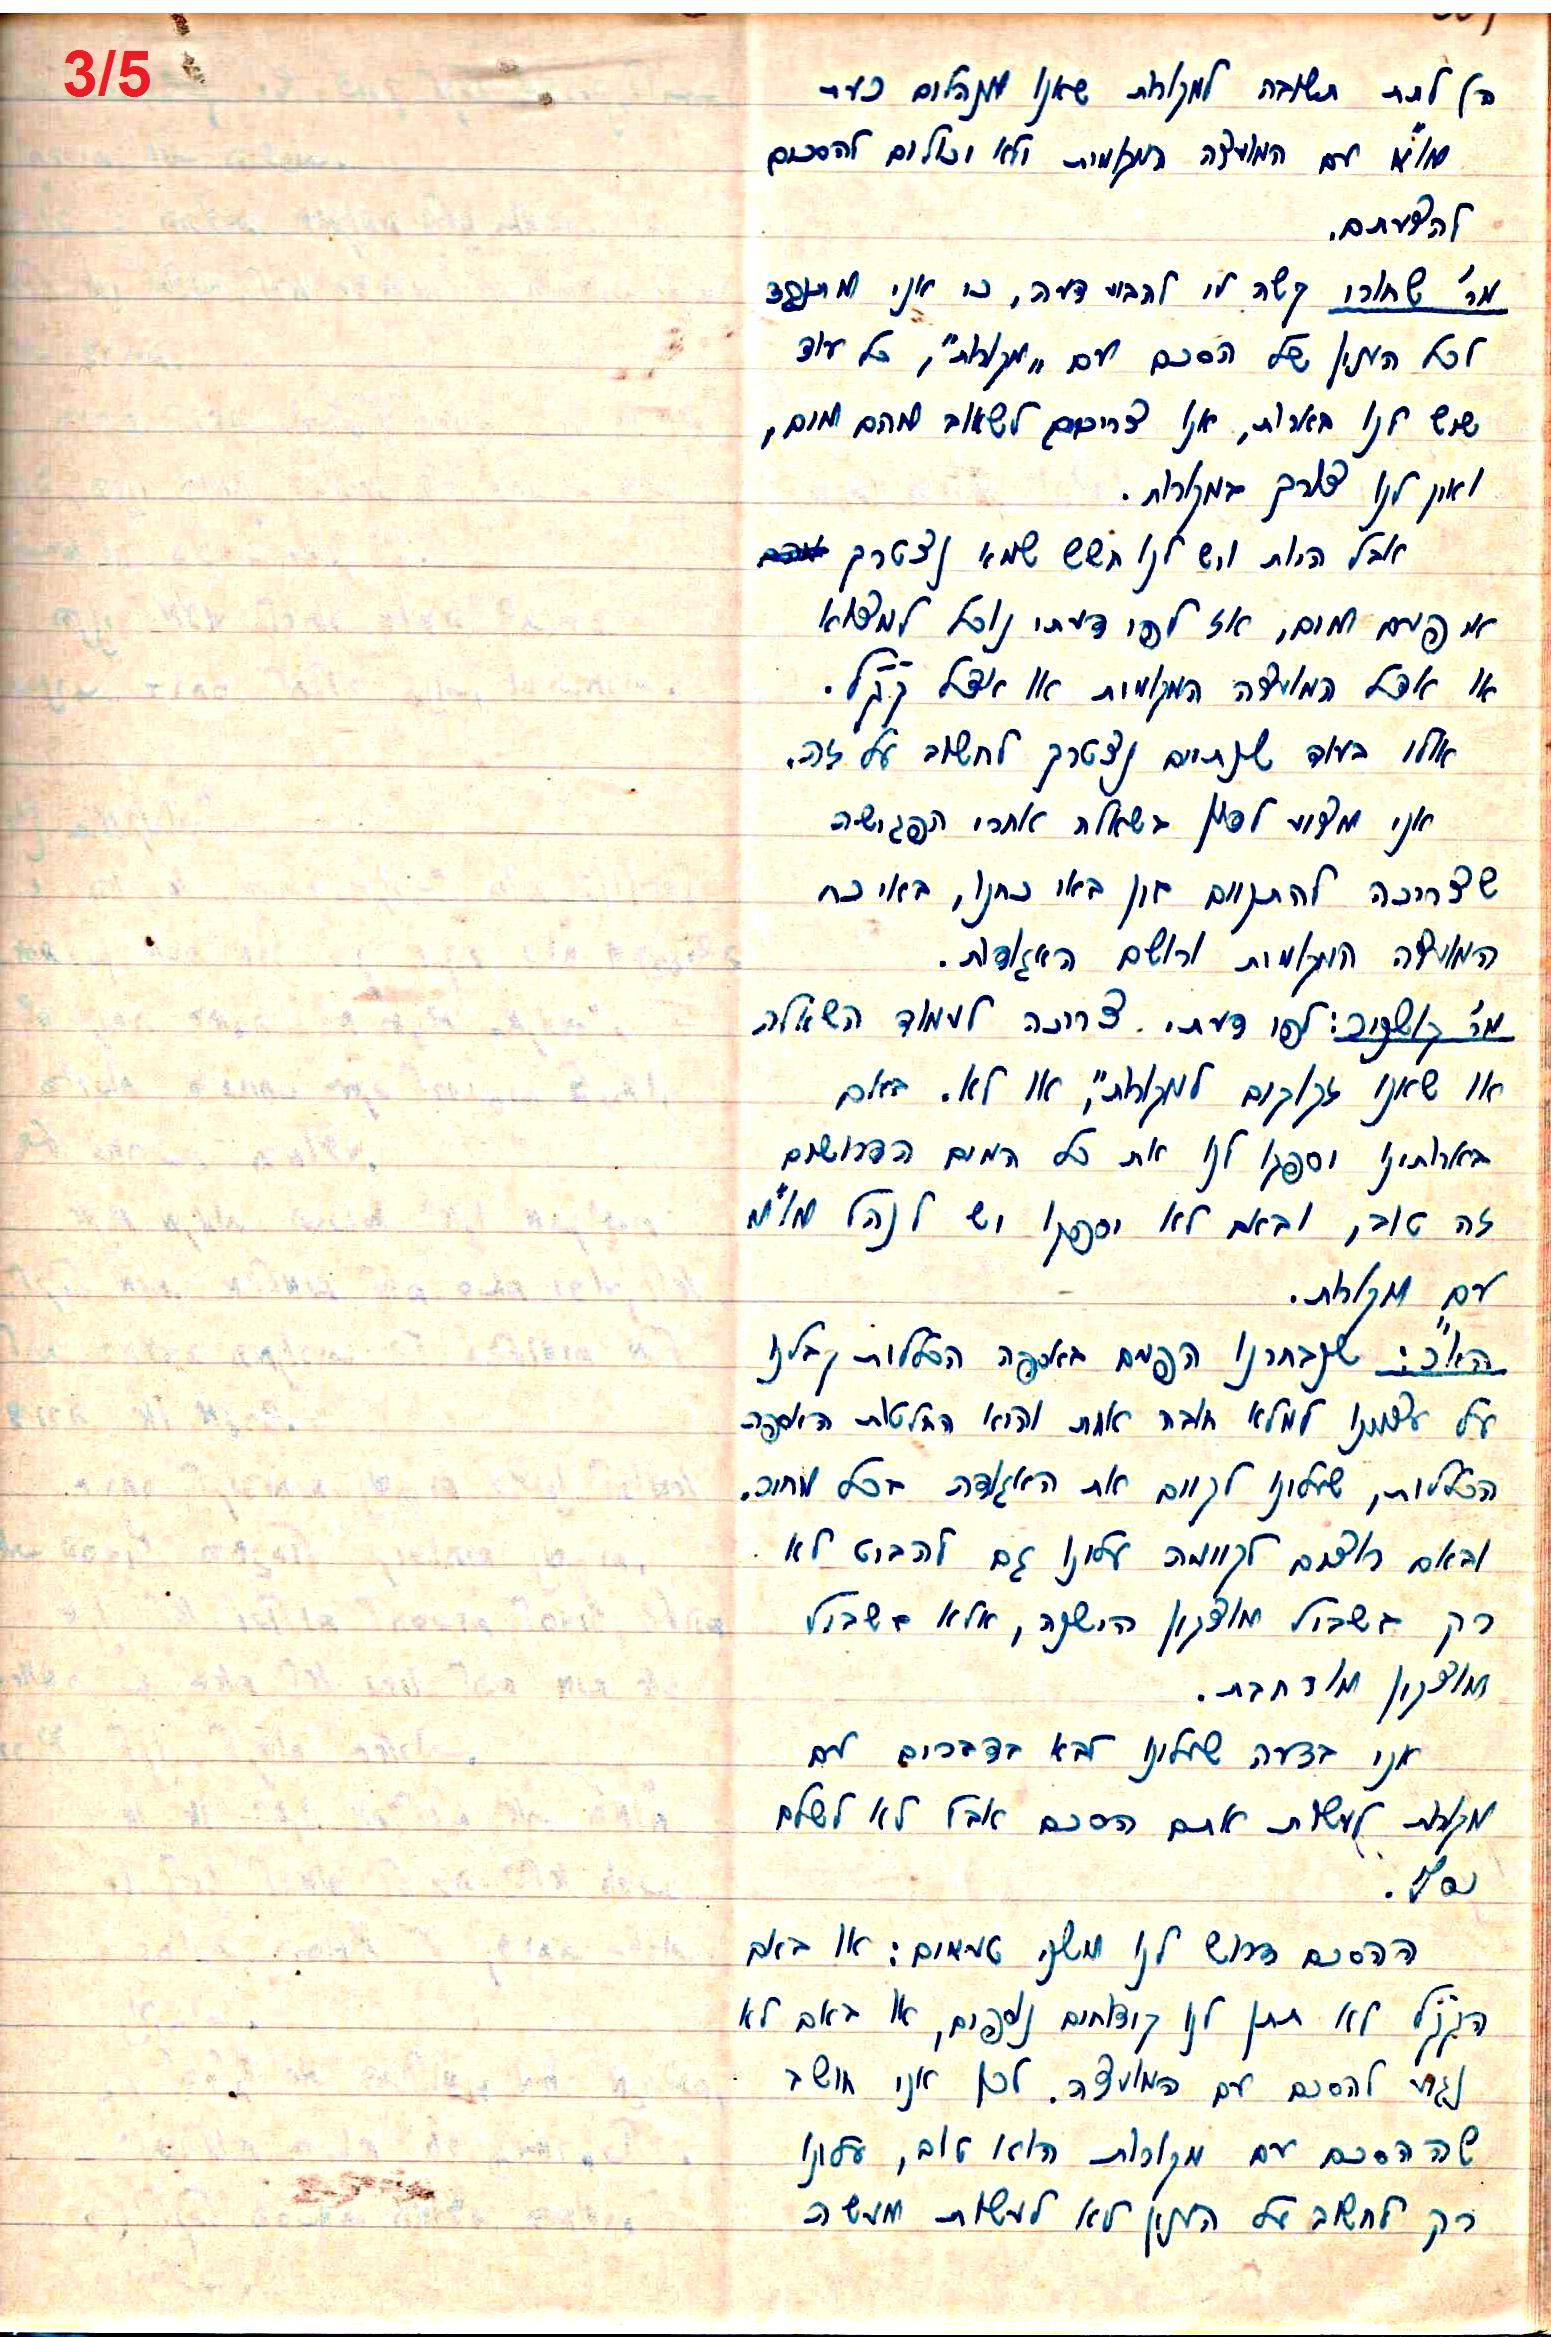 3/5
רק לתת תשובה למקורות שאנו מנהלים כעת
מו"מ עם המועצה המקומית ולא יכולים להסכים
להצעתם.
מר' שחורי קשה לי להביע דעה, כי אני מתנגד
לכל הענין של הסכם עם "מקורות", כל עוד
שיש לנו בארות, אנו צריכים לשאוב מהם מים,
ואין לנו צורך במקורות.
אבל היות ויש לנו חשש שמא נצטרך
אי פעם מים, אז לפי דעתי נוכל למצוא
או אצל המועצה המקומית או אצל קק"ל.
אולי בעוד שנתיים נצטרך לחשוב על זה.
אני מציע לדון בשאלה אחרי הפגישה
שצריכה להתקיים בין באי כחנו, באי כח
המועצה המקומית ורושם האגודות.
מר' קושניר: לפי דעתי צריכה לעמוד השאלה
או שאנו זקוקים למקורות", או לא. באם
בארותינו יספקו לנו את כל המים הדרושים
זה טוב, ובאם לא יספקו יש לנהל מו"מ
עם מקורות.
היו"ר: שנבחרנו הפעם באספה הכללית קבלנו
על עצמנו למלא חובה אחת והיא החלטת האספה
הכללית, שעלינו לקיים את האגודה בכל מחיר.
ובאם רוצים לקיימה עלינו גם להביט לא
רק בשביל מוצקין הישנה, אלא בשביל
מוצקין מורחבת.
אני בדעה שעלינו לבא בדברים עם
מקורות לעשות אתם הסכם אבל לא לשלם
כסף.
ההסכם דרוש לנו משני טעמים: או באם
הקק"ל לא תתן לנו קידוחים נוספים, או באם לא
נגיע להסכם עם המועצה. לכן אני חושב
שההסכם עם מקורות הוא טוב, עלינו
רק לחשוב על הענין לא לעשות מעשה